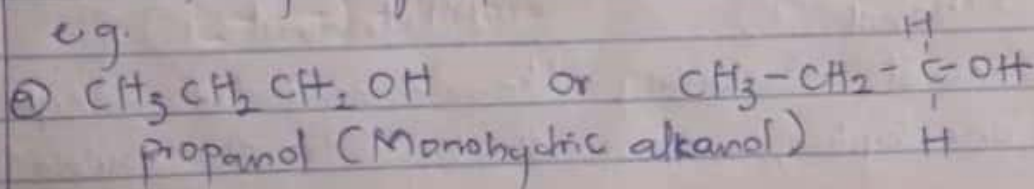 eg.
(a) CH3 CH2 CH2 OH or CH3-CH2-C-OH
H
H
propanol (Monohydric alkanol)